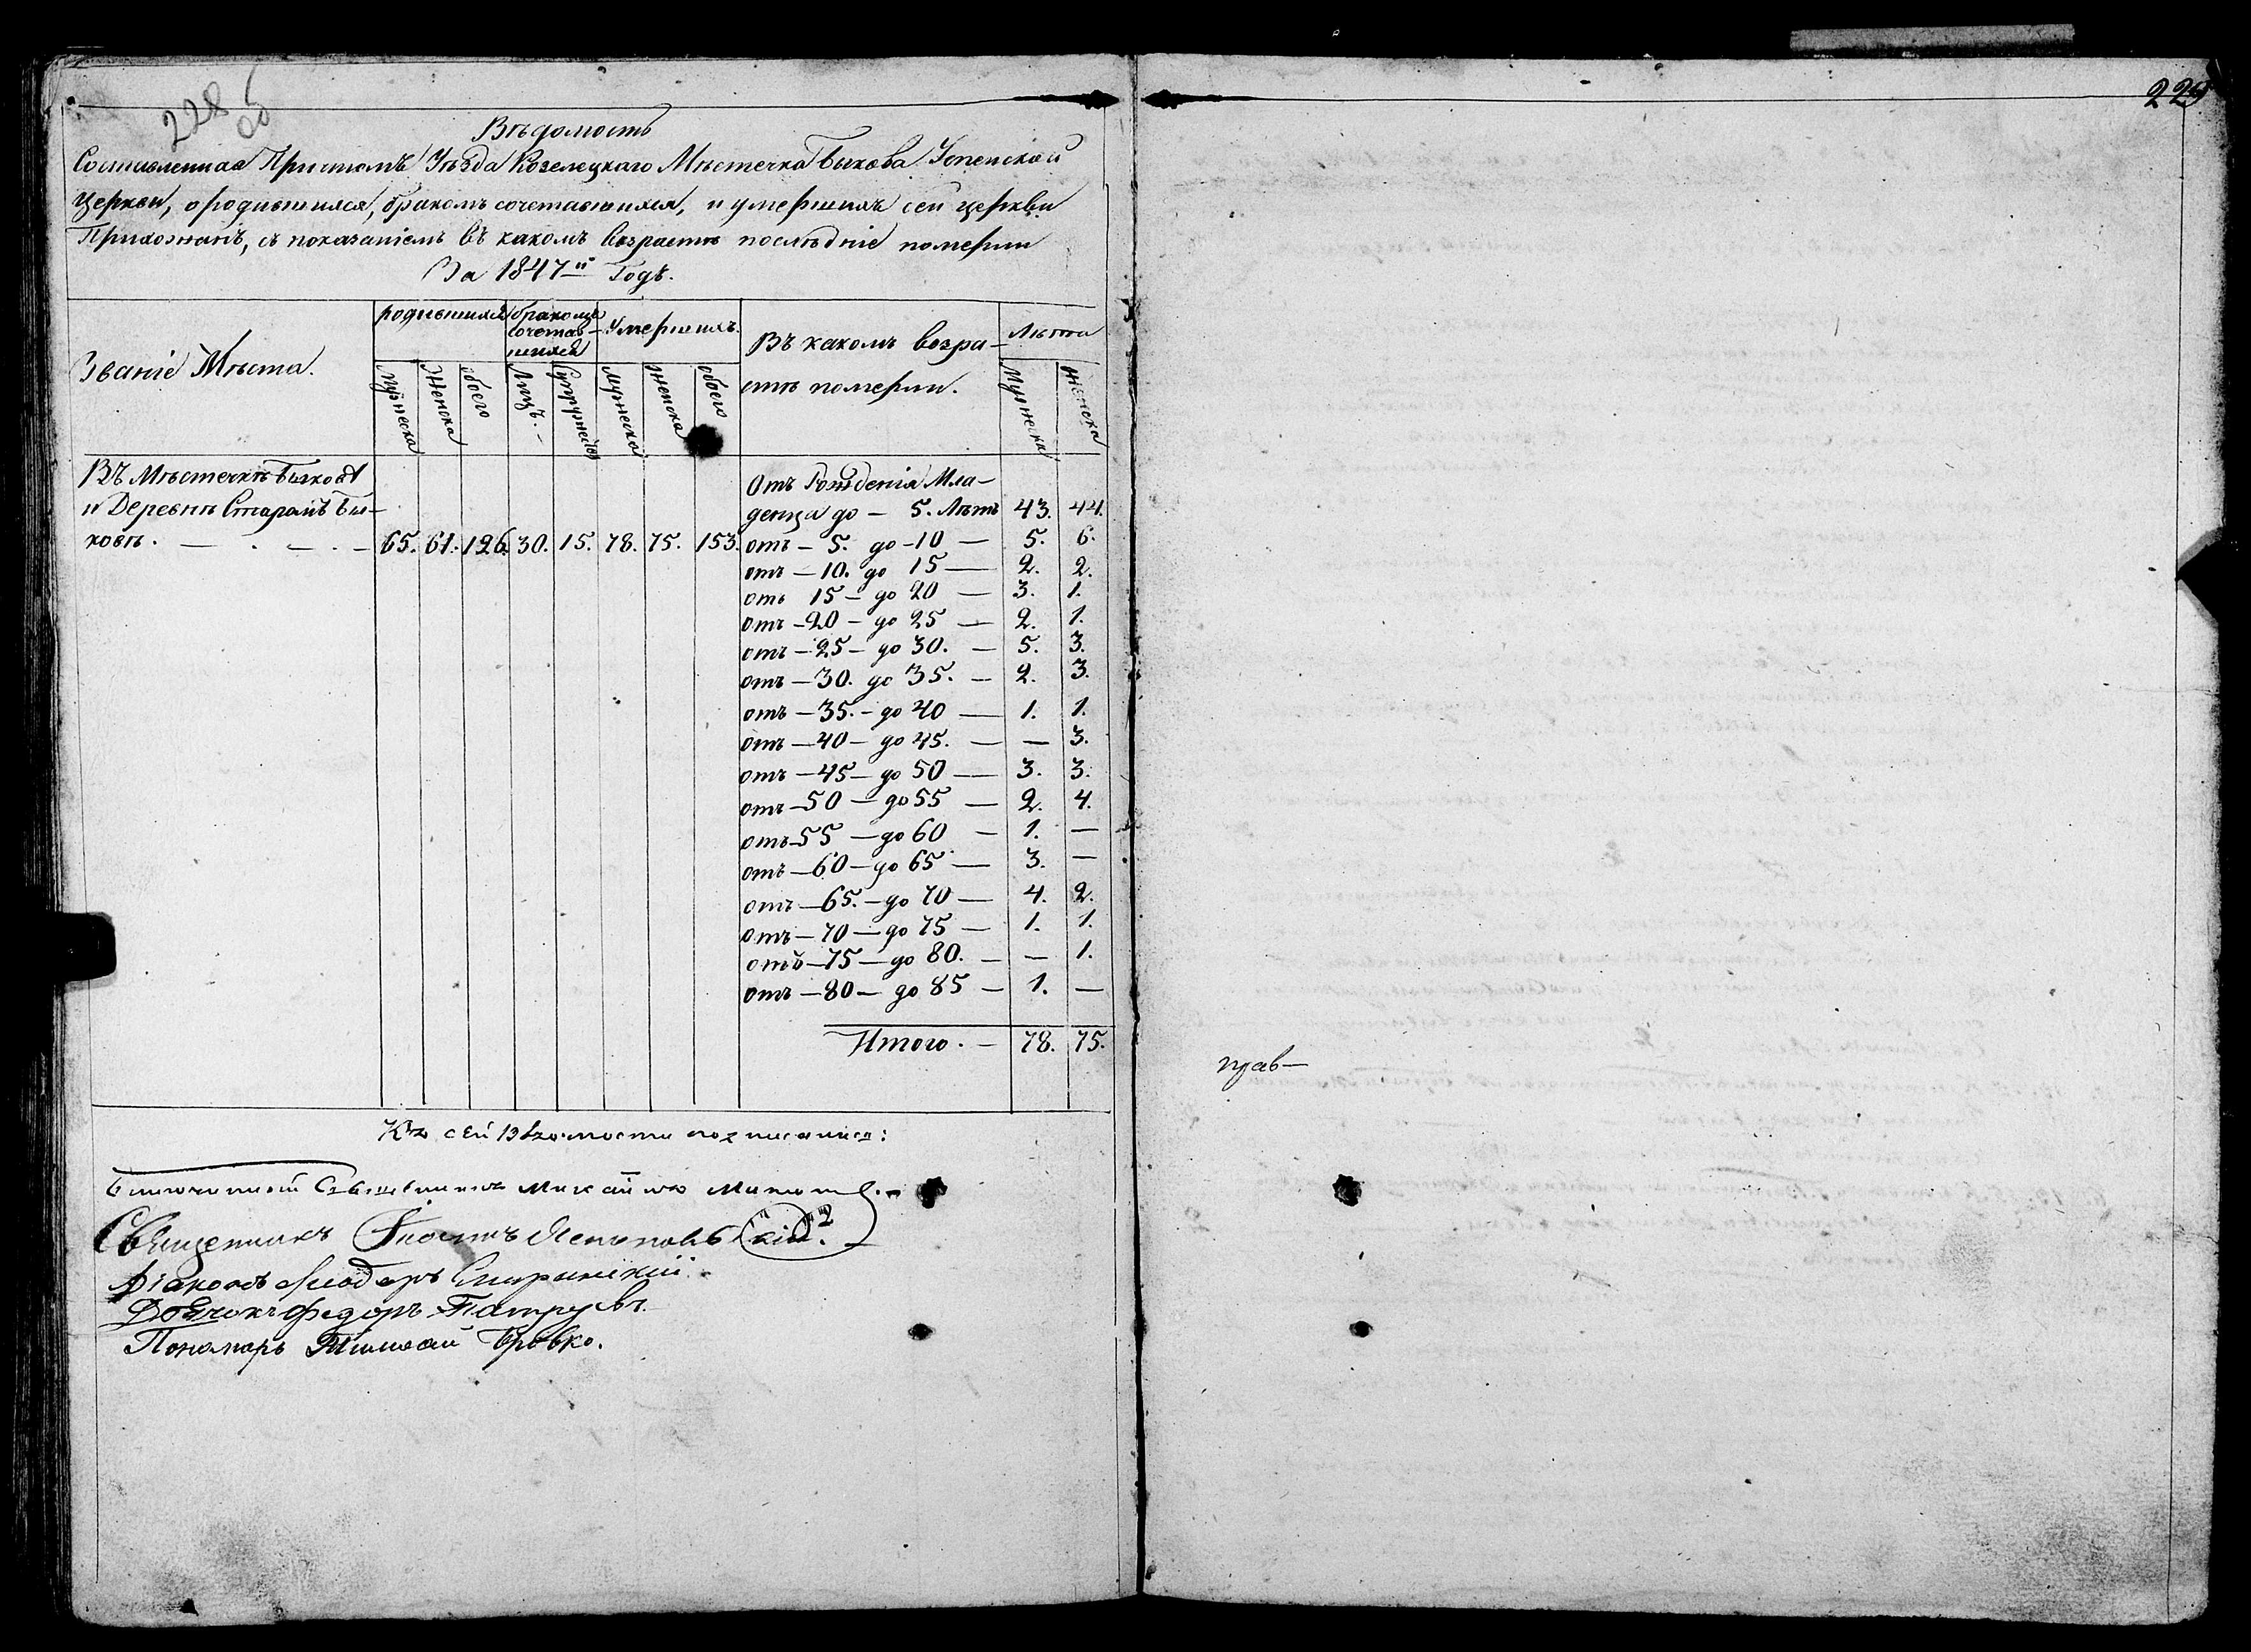 228 об
Вѣдомость
Составленная Причтомъ Уѣзда Козелецкаго Мѣстечка Быкова Успенской
церкви, о родившихся, бракомъ сочетавшихся, и умершихъ сей церкви
Прихожанъ, съ показаніемъ въ какомъ возрастѣ послѣдніе померли
За 1847й Годъ.
Званіе Мѣста. | родившихся | бракомъ сочетав-шихся | Умершихъ. | Въ какомъ возра-стѣ померли. | Лѣта
Мужеска | Женска | обоего | Лицъ. - | Супружествъ | мужеска | женска | обоего | Мужеска | женска
Въ Мѣстечкѣ Быковѣ
и Деревнѣ Старомъ Бы-
ковѣ. — . — . — 65. 61. 126. 30. 15. 78. 75. 153.
Отъ Рожденія Мла-
денца до — 5. Лѣтъ 43. 44.
отъ — 5. до — 10 — 5. 6.
отъ — 10. до 15 — 2. 2.
отъ 15 — до 20 — 3. 1.
отъ — 20 — до 25 — 2. 1.
отъ — 25 — до 30. — 5. 3.
отъ — 30. до 35. — 2. 3.
отъ — 35. — до 40 — 1. 1.
отъ — 40 — до 45. — — 3.
отъ — 45 — до 50 — 3. 3.
отъ — 50 — до 55 — 2. 4.
отъ — 55 — до 60 — 1. —
отъ — 60 — до 65 — 3. —
отъ — 65. — до 70 — 4. 2.
отъ — 70 — до 75 — 1. 1.
отъ — 75 — до 80. — — 1.
отъ — 80 — до 85 — 1. —
Итого. — 78. 75.
Къ сей Вѣдомости подписались:
Священникъ Михаилъ
Священникъ
Діаконъ
Дьячокъ Федоръ
Пономарь Бровко.
229